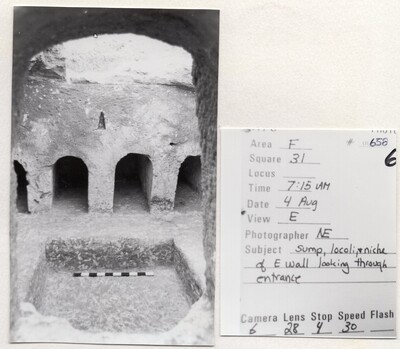 Area F # 658
Square 31 6
Locus
Time 7:15 AM
Date 4 Aug
View E
Photographer NE
Subject sump, loculi, + niche
of E wall looking through
entrance
Camera Lens Stop Speed Flash
6 28 4 30